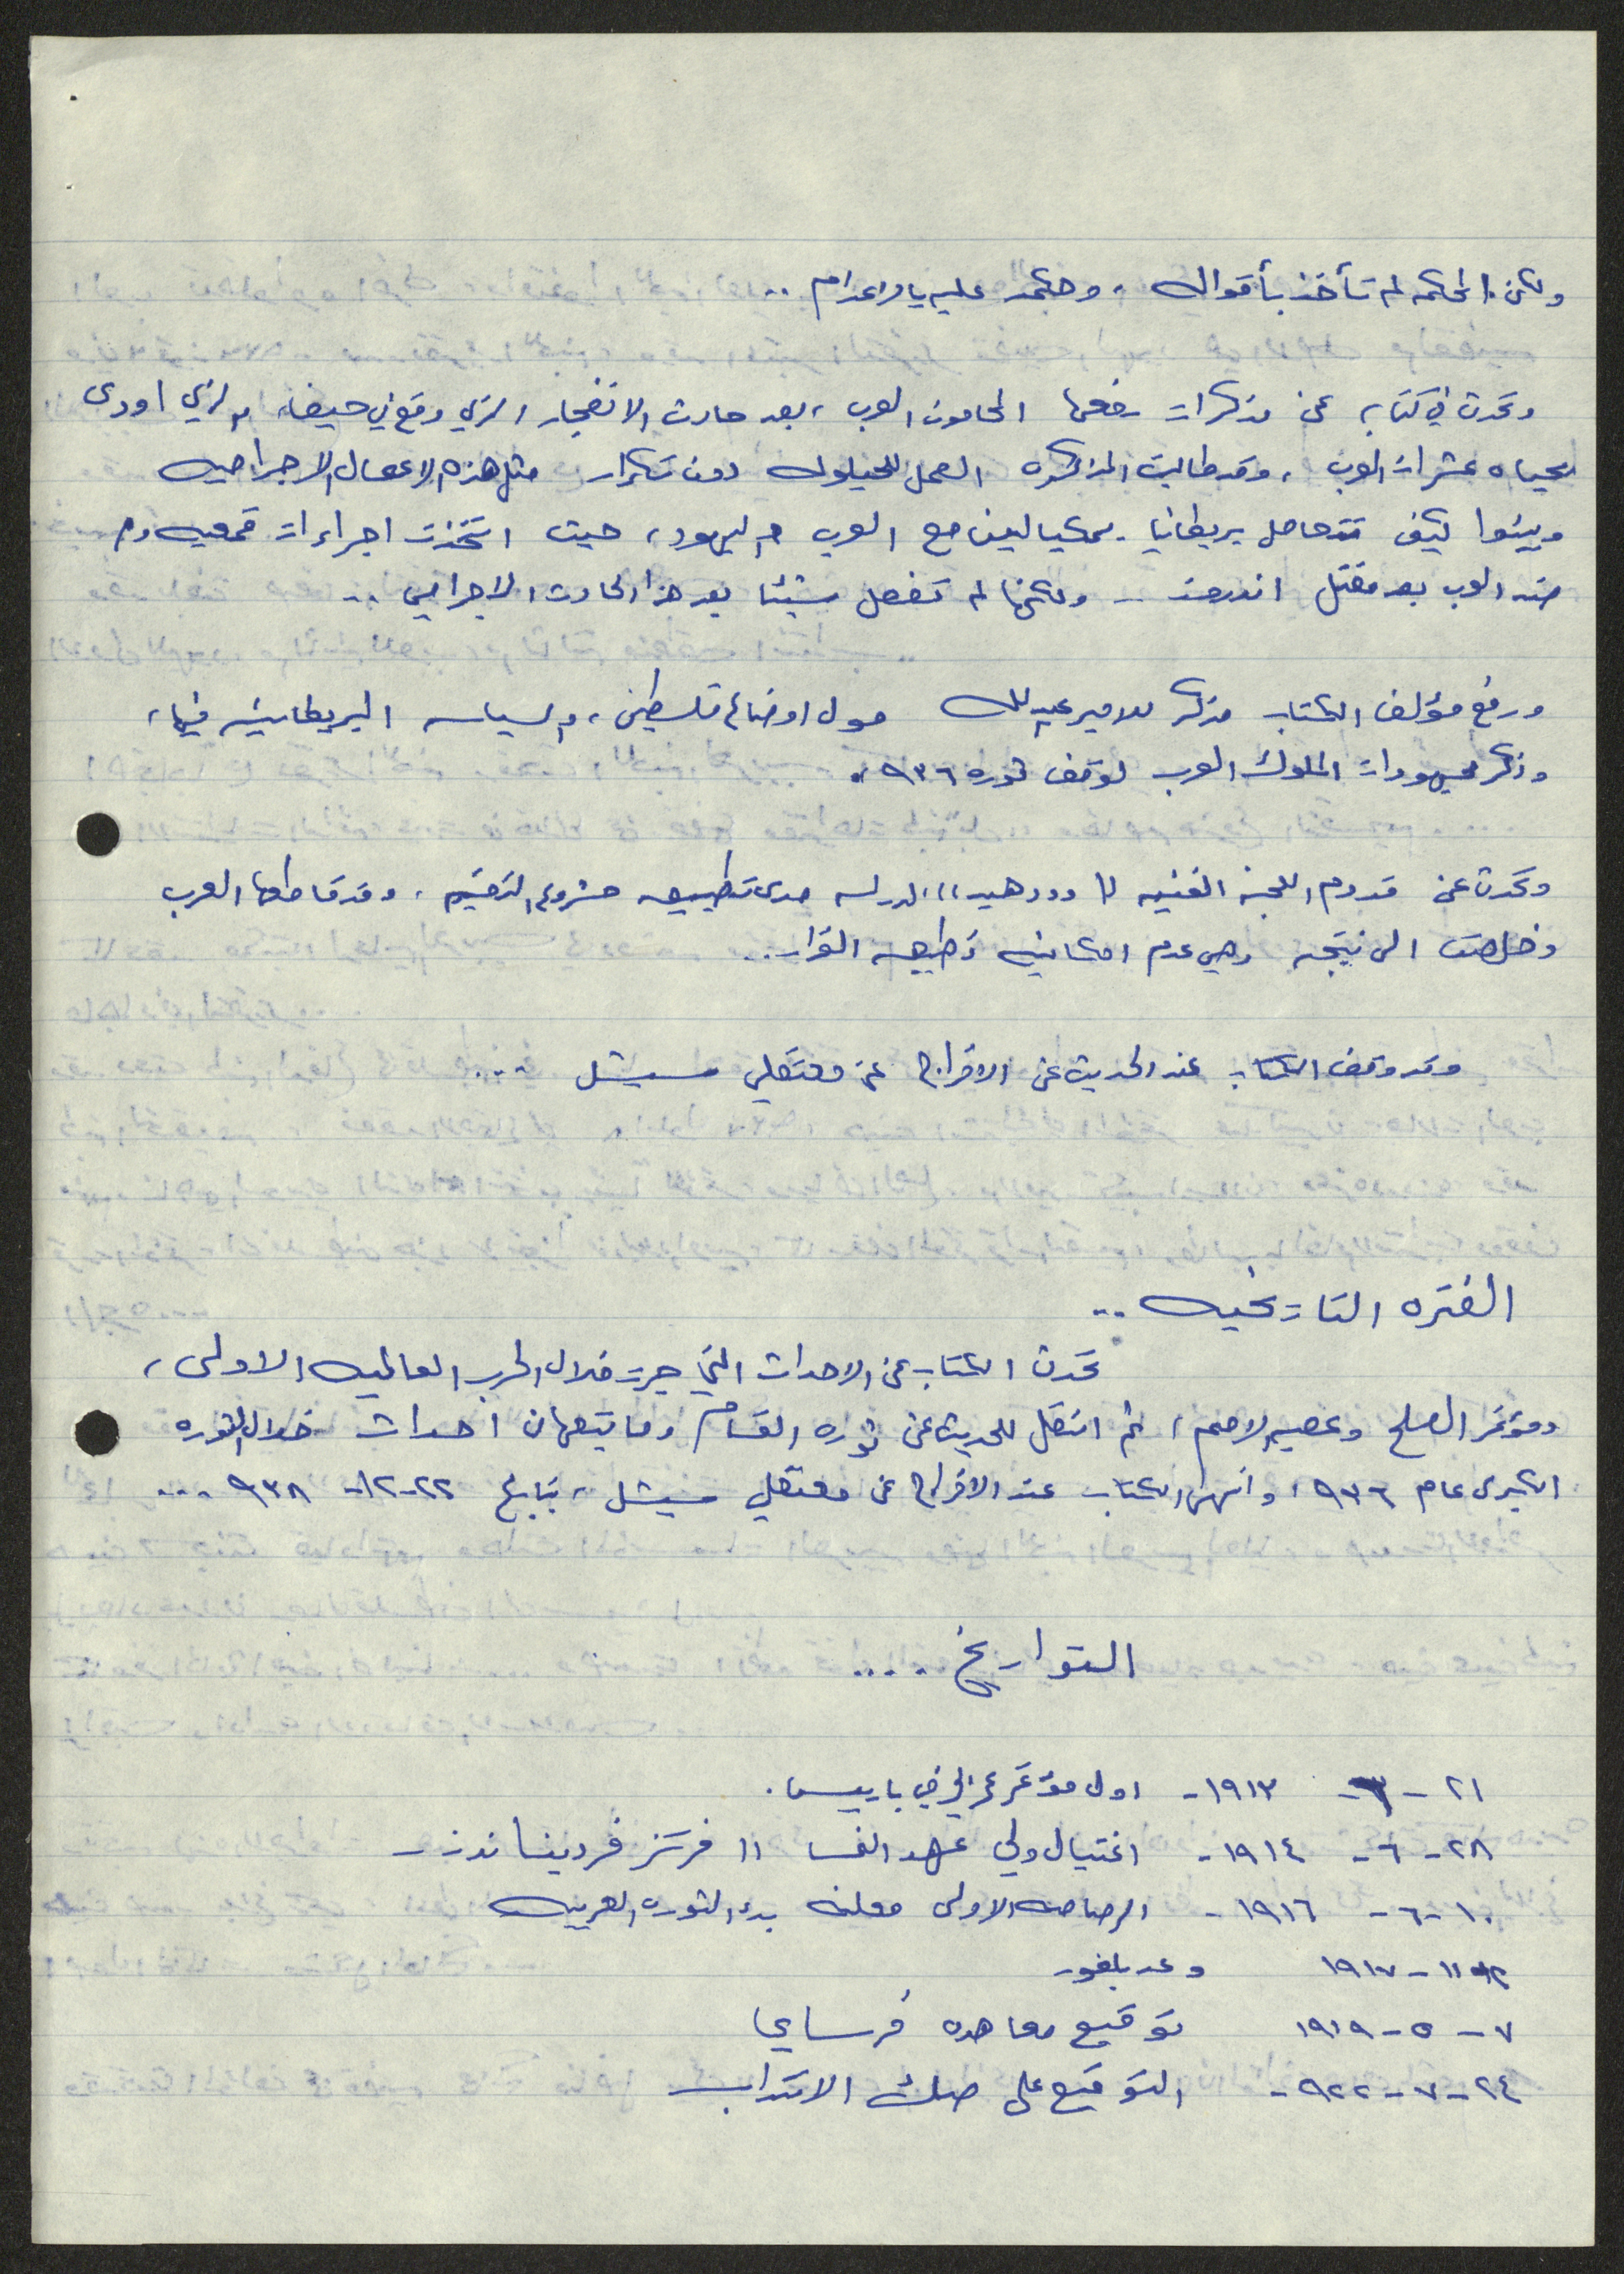 ولكن المحكمه لم تأخذ بأقواله، وحكمت عليه بالاعدام ..
وتحدث في كتابه عن مذكرات رفعها المحامون العرب، بعد حادث الانفجار الذي وقع في حيفا، والذي اودى
بحياه عشرات العرب، وقد طالبت المذكره العمل للحيلوله دون تكرار مثل هذه الاعمال الاجراميه
وبينوا كيف تتعامل بريطانيا بمكيالين مع العرب واليهود، حيث اتخذت اجراءات قمعيه
ضد العرب بعد مقتل اندروز .. ولكنها لم تفعل شيئا بعد هذا الحادث الاجرامي ..
ورفع مؤلف الكتاب مذكره للامير عبدالله حول اوضاع فلسطين، والسياسه البريطانيه فيها،
وذكر مجهودات الملوك العرب لوقف ثوره ٩٣٦.
وتحدث عن قدوم اللجنه الفنيه "وودهيد" لدراسه مدى تطبيق مشروع التقسيم، وقد قاطعها العرب
وخلصت الى نتيجه وهي عدم امكانيه تطبيق القرار..
وقد وقف الكتاب عند الحديث عن الافراج عن معتقلي سيشل ...
الفتره التاريخيه ..
تحدث الكتاب عن الاحداث التي جرت خلال الحرب العالميه الاولى،
ومؤتمر الصلح وعصبه الامم، ثم انتقل للحديث عن ثوره القسام وما تبعها من احداث خلال الثوره
الكبرى عام ٩٣٦، وانهى الكتاب عند الافراج عن معتقلي سيشل، بتاريخ ٢٢-١٢-٩٣٨ ...
التواريخ ....
٢١ - ٦ - ١٩١٣ - اول مؤتمر عربي في باريس.
٢٨ - ٦ - ١٩١٤ - اغتيال ولي عهد النمسا "فرنز فرديناند..
١٠ - ٦ - ١٩١٦ - الرصاصه الاولى معلنه بدء الثوره العربيه
٢ - ١١ - ١٩١٧ وعد بلفور
٧ - ٥ - ١٩١٩ توقيع معاهده فرساي
٢٤ - ٧ - ٩٢٢ - التوقيع على صك الانتداب